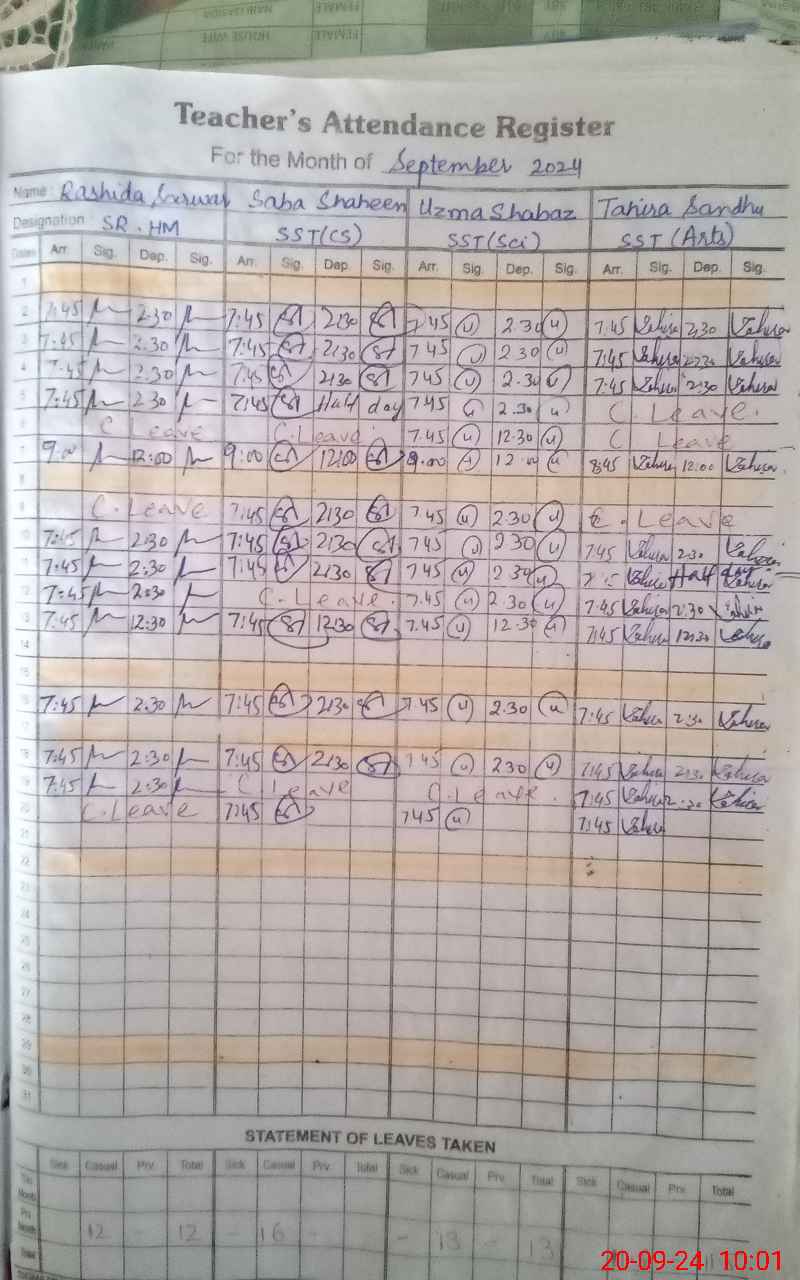 FEMALE
HOUSE WIFE
FEMALE
Teacher's Attendance Register
For the Month of September 2024
Name: Rashida Sarwar Saba Shaheen Uzma Shabaz Tahira Sandhu
Designation SR.HM SST(CS) SST(Sci) SST (Arts)
Dates Arr. Sig. Dep. Sig. Arr. Sig. Dep. Sig. Arr. Sig. Dep. Sig. Arr. Sig. Dep. Sig.
1
2 7:45 2:30 7:45 2:30 7 45 2.30 7:45 Tahira 2:30 Tahira
3 7:45 2:30 7:45 2:30 7 45 2 30 7:45 Tahira 2:30 Tahira
4 7:45 2:30 7:45 2:30 7 45 2.30 7:45 Tahira 2:30 Tahira
5 7:45 2 30 7:45 Half day 7.45 2.30 C. Leave.
6 C Leave C.Leave. 7.45 12.30 C Leave
7 9:00 12:00 9:00 12:00 9.00 12.00 8:45 Tahira 12:00 Tahira
8
9 C. Leave 7:45 2:30 7 45 2.30 C. Leave
10 7:45 2:30 7:45 2:30 7 45 2 30 7:45 Tahira 2:30 Tahira
11 7:45 2:30 7:45 2:30 7 45 2 30 Tahira Half day Tahira
12 7:45 2:30 C.Leave. 7.45 2.30 7:45 Tahira 2:30 Tahira
13 7:45 12:30 7:45 12:30 7.45 12.30 7:45 Tahira 12:30 Tahira
14
15
16 7:45 2:30 7:45 2:30 7.45 2.30 7:45 Tahira 2:30 Tahira
17
18 7:45 2:30 7:45 2:30 7 45 2 30 7:45 Tahira 2:30 Tahira
19 7:45 2:30 C Leave C.Leave. 7:45 Tahira 2:30 Tahira
20 C.Leave 7:45 7 45 7:45 Tahira
21
22
23
24
25
26
27
28
29
30
31
STATEMENT OF LEAVES TAKEN
Sick Casual Prv. Total Sick Casual Prv. Total Sick Casual Prv. Total Sick Casual Prv. Total
This Month
Prv. Month 12 - 12 - 16 - - 13 - 13
Total
20-09-24 10:01